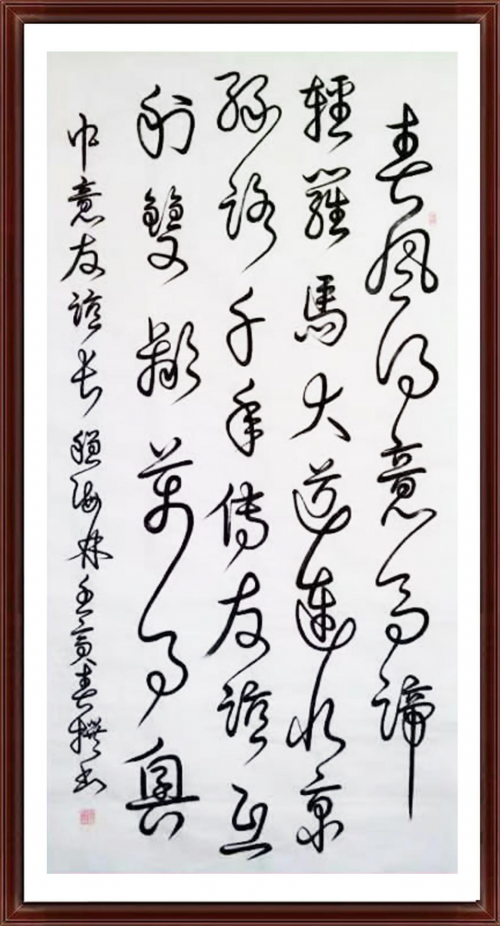 春風得意馬蹄
輕羅馬大道連北京
絲路千年傳友誼互
利雙贏萬事興
中意友誼長 海林壬寅春撰书